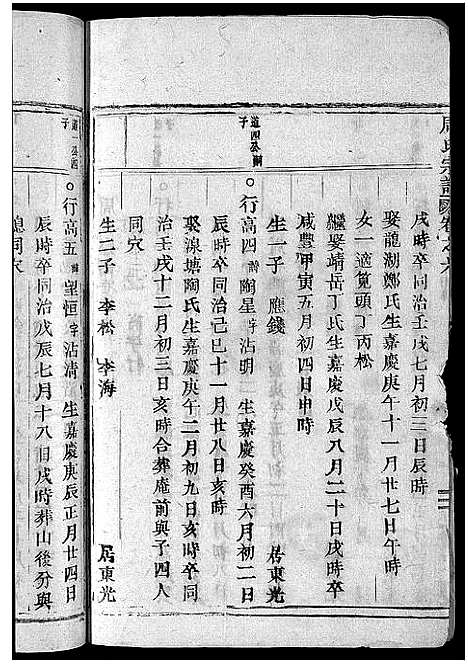 周氏宗譜 卷之六
戌時卒同治壬戌七月初三日辰時
娶龍湖鄭氏生嘉慶庚午十一月廿七日午時
女一適筧頭丁丙松
繼娶靖岳丁氏生嘉慶戊辰八月二十日戌時卒
咸豐甲寅五月初四日申時
生一子 應錢 居東光
道四公嗣子
○行高四諱陶星字沾明 生嘉慶癸酉六月初二日
辰時卒同治己巳十一月廿八日亥時
娶湶塘陶氏生嘉慶庚午二月初九日亥時卒同
治壬戌十二月初三日亥時合葬庵前與子四人
同穴
生二子 李松 李海 居東光
道一公四子
○行高五諱望恒字沾清 生嘉慶庚辰正月廿四日
辰時卒同治戊辰七月十八日戌時葬山後分與
同穴